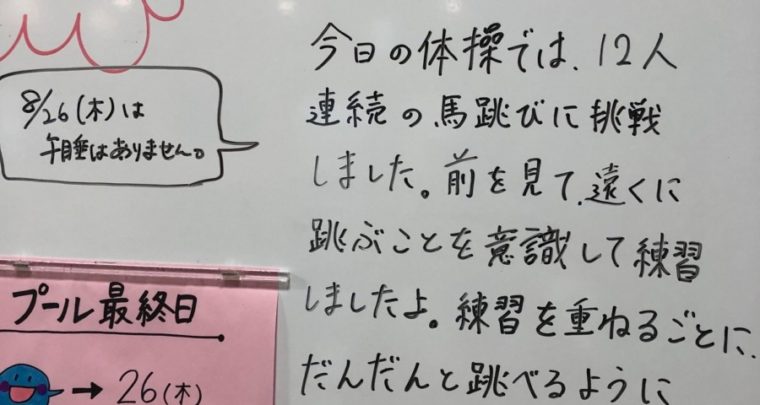 8/26(木)は
午睡はありません。
プール最終日
→ 26(木)
今日の体操では、12人
連続の馬跳びに挑戦
しました。前を見て、遠くに
跳ぶことを意識して練習
しましたよ。練習を重ねるごとに、
だんだんと跳べるように